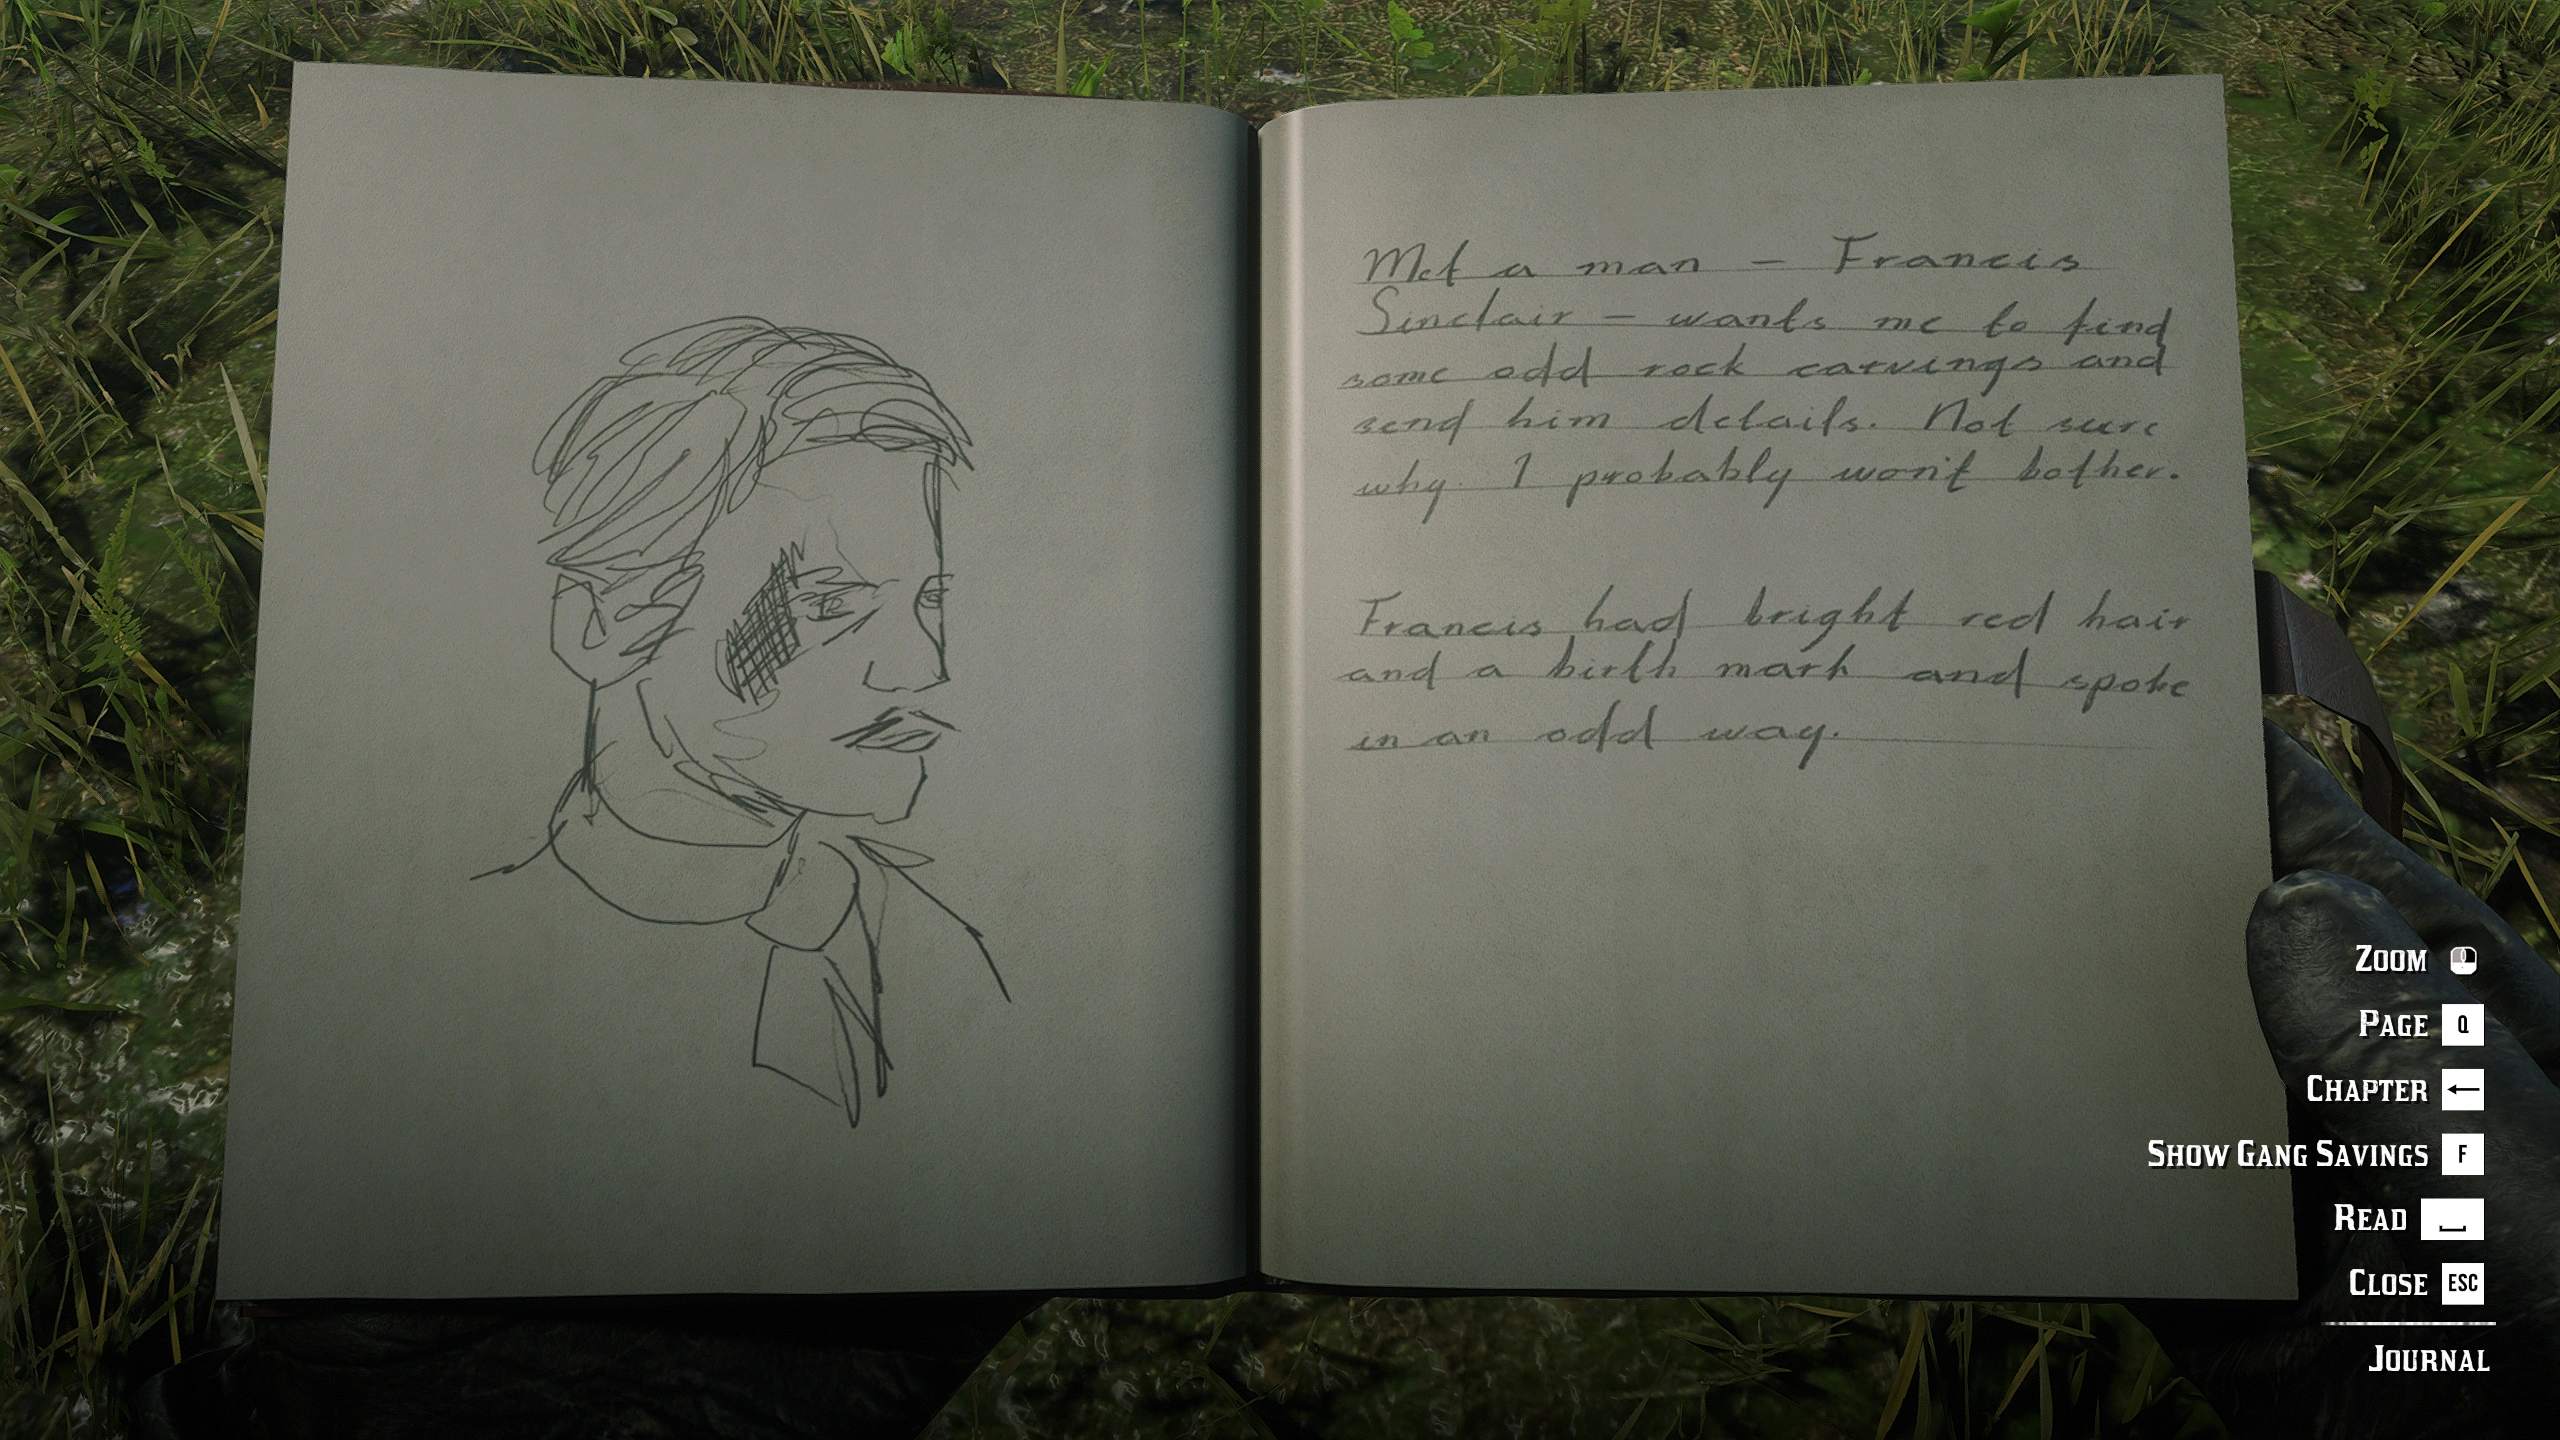 Met a man – Francis
Sinclair – wants me to find
some odd rock carvings and
send him details. Not sure
why. I probably won't bother.
Francis had bright red hair
and a birth mark and spoke
in an odd way.
Zoom
Page Q
Chapter ←
Show Gang Savings F
Read
Close ESC
Journal